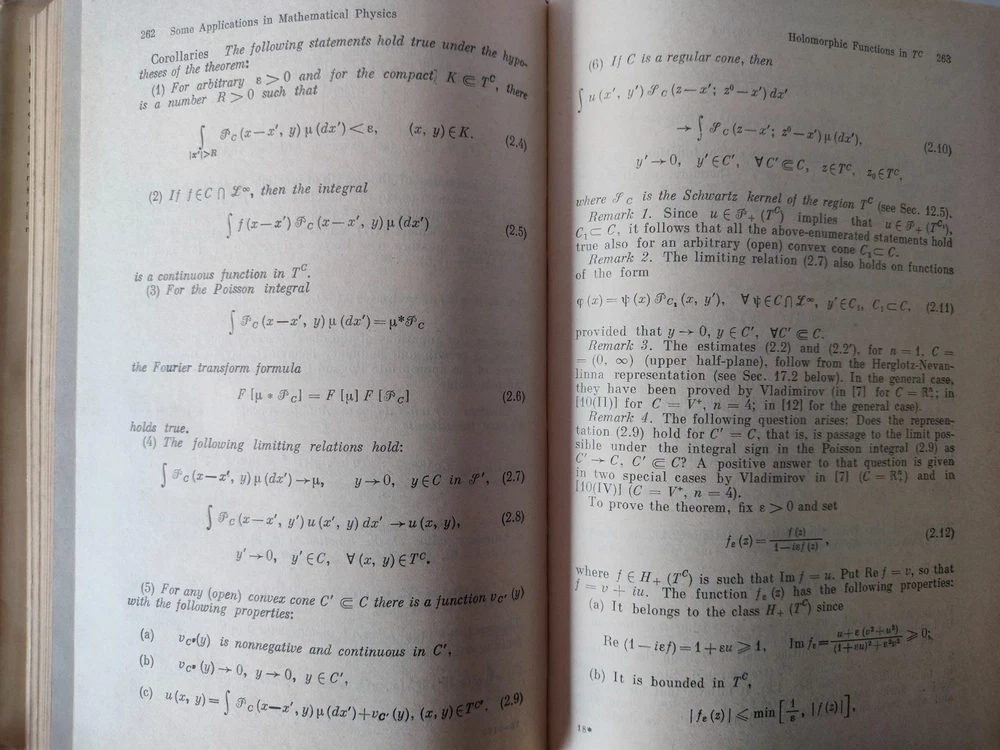 262 Some Applications in Mathematical Physics
Corollaries The following statements hold true under the hypo-
theses of the theorem:
(1) For arbitrary ε > 0 and for the compact K ⋐ T^C, there
is a number R > 0 such that
∫_{|x'|>R} 𝒫_C (x−x', y) μ (dx') < ε, (x, y) ∈ K. (2.4)
(2) If f ∈ C ∩ ℒ^∞, then the integral
∫ f (x−x') 𝒫_C (x−x', y) μ (dx') (2.5)
is a continuous function in T^C.
(3) For the Poisson integral
∫ 𝒫_C (x−x', y) μ (dx') = μ * 𝒫_C
the Fourier transform formula
F [μ * 𝒫_C] = F [μ] F [𝒫_C] (2.6)
holds true.
(4) The following limiting relations hold:
∫ 𝒫_C (x−x', y) μ (dx') → μ, y → 0, y ∈ C in 𝒮', (2.7)
∫ 𝒫_C (x−x', y') u (x', y) dx' → u (x, y), (2.8)
y' → 0, y' ∈ C, ∀ (x, y) ∈ T^C.
(5) For any (open) convex cone C' ⋐ C there is a function v_{C'} (y)
with the following properties:
(a) v_{C'} (y) is nonnegative and continuous in C',
(b) v_{C'} (y) → 0, y → 0, y ∈ C',
(c) u (x, y) = ∫ 𝒫_C (x−x', y) μ (dx') + v_{C'} (y), (x, y) ∈ T^{C'}. (2.9)
Holomorphic Functions in T^C 263
(6) If C is a regular cone, then
∫ u (x', y') 𝒮_C (z−x'; z⁰−x') dx'
→ ∫ 𝒮_C (z−x'; z⁰−x') μ (dx'), (2.10)
y' → 0, y' ∈ C', ∀ C' ⋐ C, z ∈ T^C, z_0 ∈ T^C,
where 𝒮_C is the Schwartz kernel of the region T^C (see Sec. 12.5).
Remark 1. Since u ∈ 𝒫_+ (T^C) implies that u ∈ 𝒫_+ (T^{C_1}),
C_1 ⊂ C, it follows that all the above-enumerated statements hold
true also for an arbitrary (open) convex cone C_1 ⊂ C.
Remark 2. The limiting relation (2.7) also holds on functions
of the form
φ (x) = ψ (x) 𝒫_{C_1} (x, y'), ∀ ψ ∈ C ∩ ℒ^∞, y' ∈ C_1, C_1 ⊂ C, (2.11)
provided that y → 0, y ∈ C', ∀C' ⋐ C.
Remark 3. The estimates (2.2) and (2.2'), for n = 1, C =
= (0, ∞) (upper half-plane), follow from the Herglotz-Nevan-
linna representation (see Sec. 17.2 below). In the general case,
they have been proved by Vladimirov (in [7] for C = ℝ^n_+; in
[10(II)] for C = V^+, n = 4; in [12] for the general case).
Remark 4. The following question arises: Does the represen-
tation (2.9) hold for C' = C, that is, is passage to the limit pos-
sible under the integral sign in the Poisson integral (2.9) as
C' → C, C' ⋐ C? A positive answer to that question is given
in two special cases by Vladimirov in [7] (C = ℝ^n_+) and in
[10(IV)] (C = V^+, n = 4).
To prove the theorem, fix ε > 0 and set
f_ε (z) = f (z) / (1−iεf (z)), (2.12)
where f ∈ H_+ (T^C) is such that Im f = u. Put Re f = v, so that
f = v + iu. The function f_ε (z) has the following properties:
(a) It belongs to the class H_+ (T^C) since
Re (1−iεf) = 1+εu ⩾ 1, Im f_ε = (u+ε (v²+u²)) / ((1+εu)²+ε²v²) ⩾ 0;
(b) It is bounded in T^C,
|f_ε (z)| ⩽ min [1/ε, |f (z)|],
18*